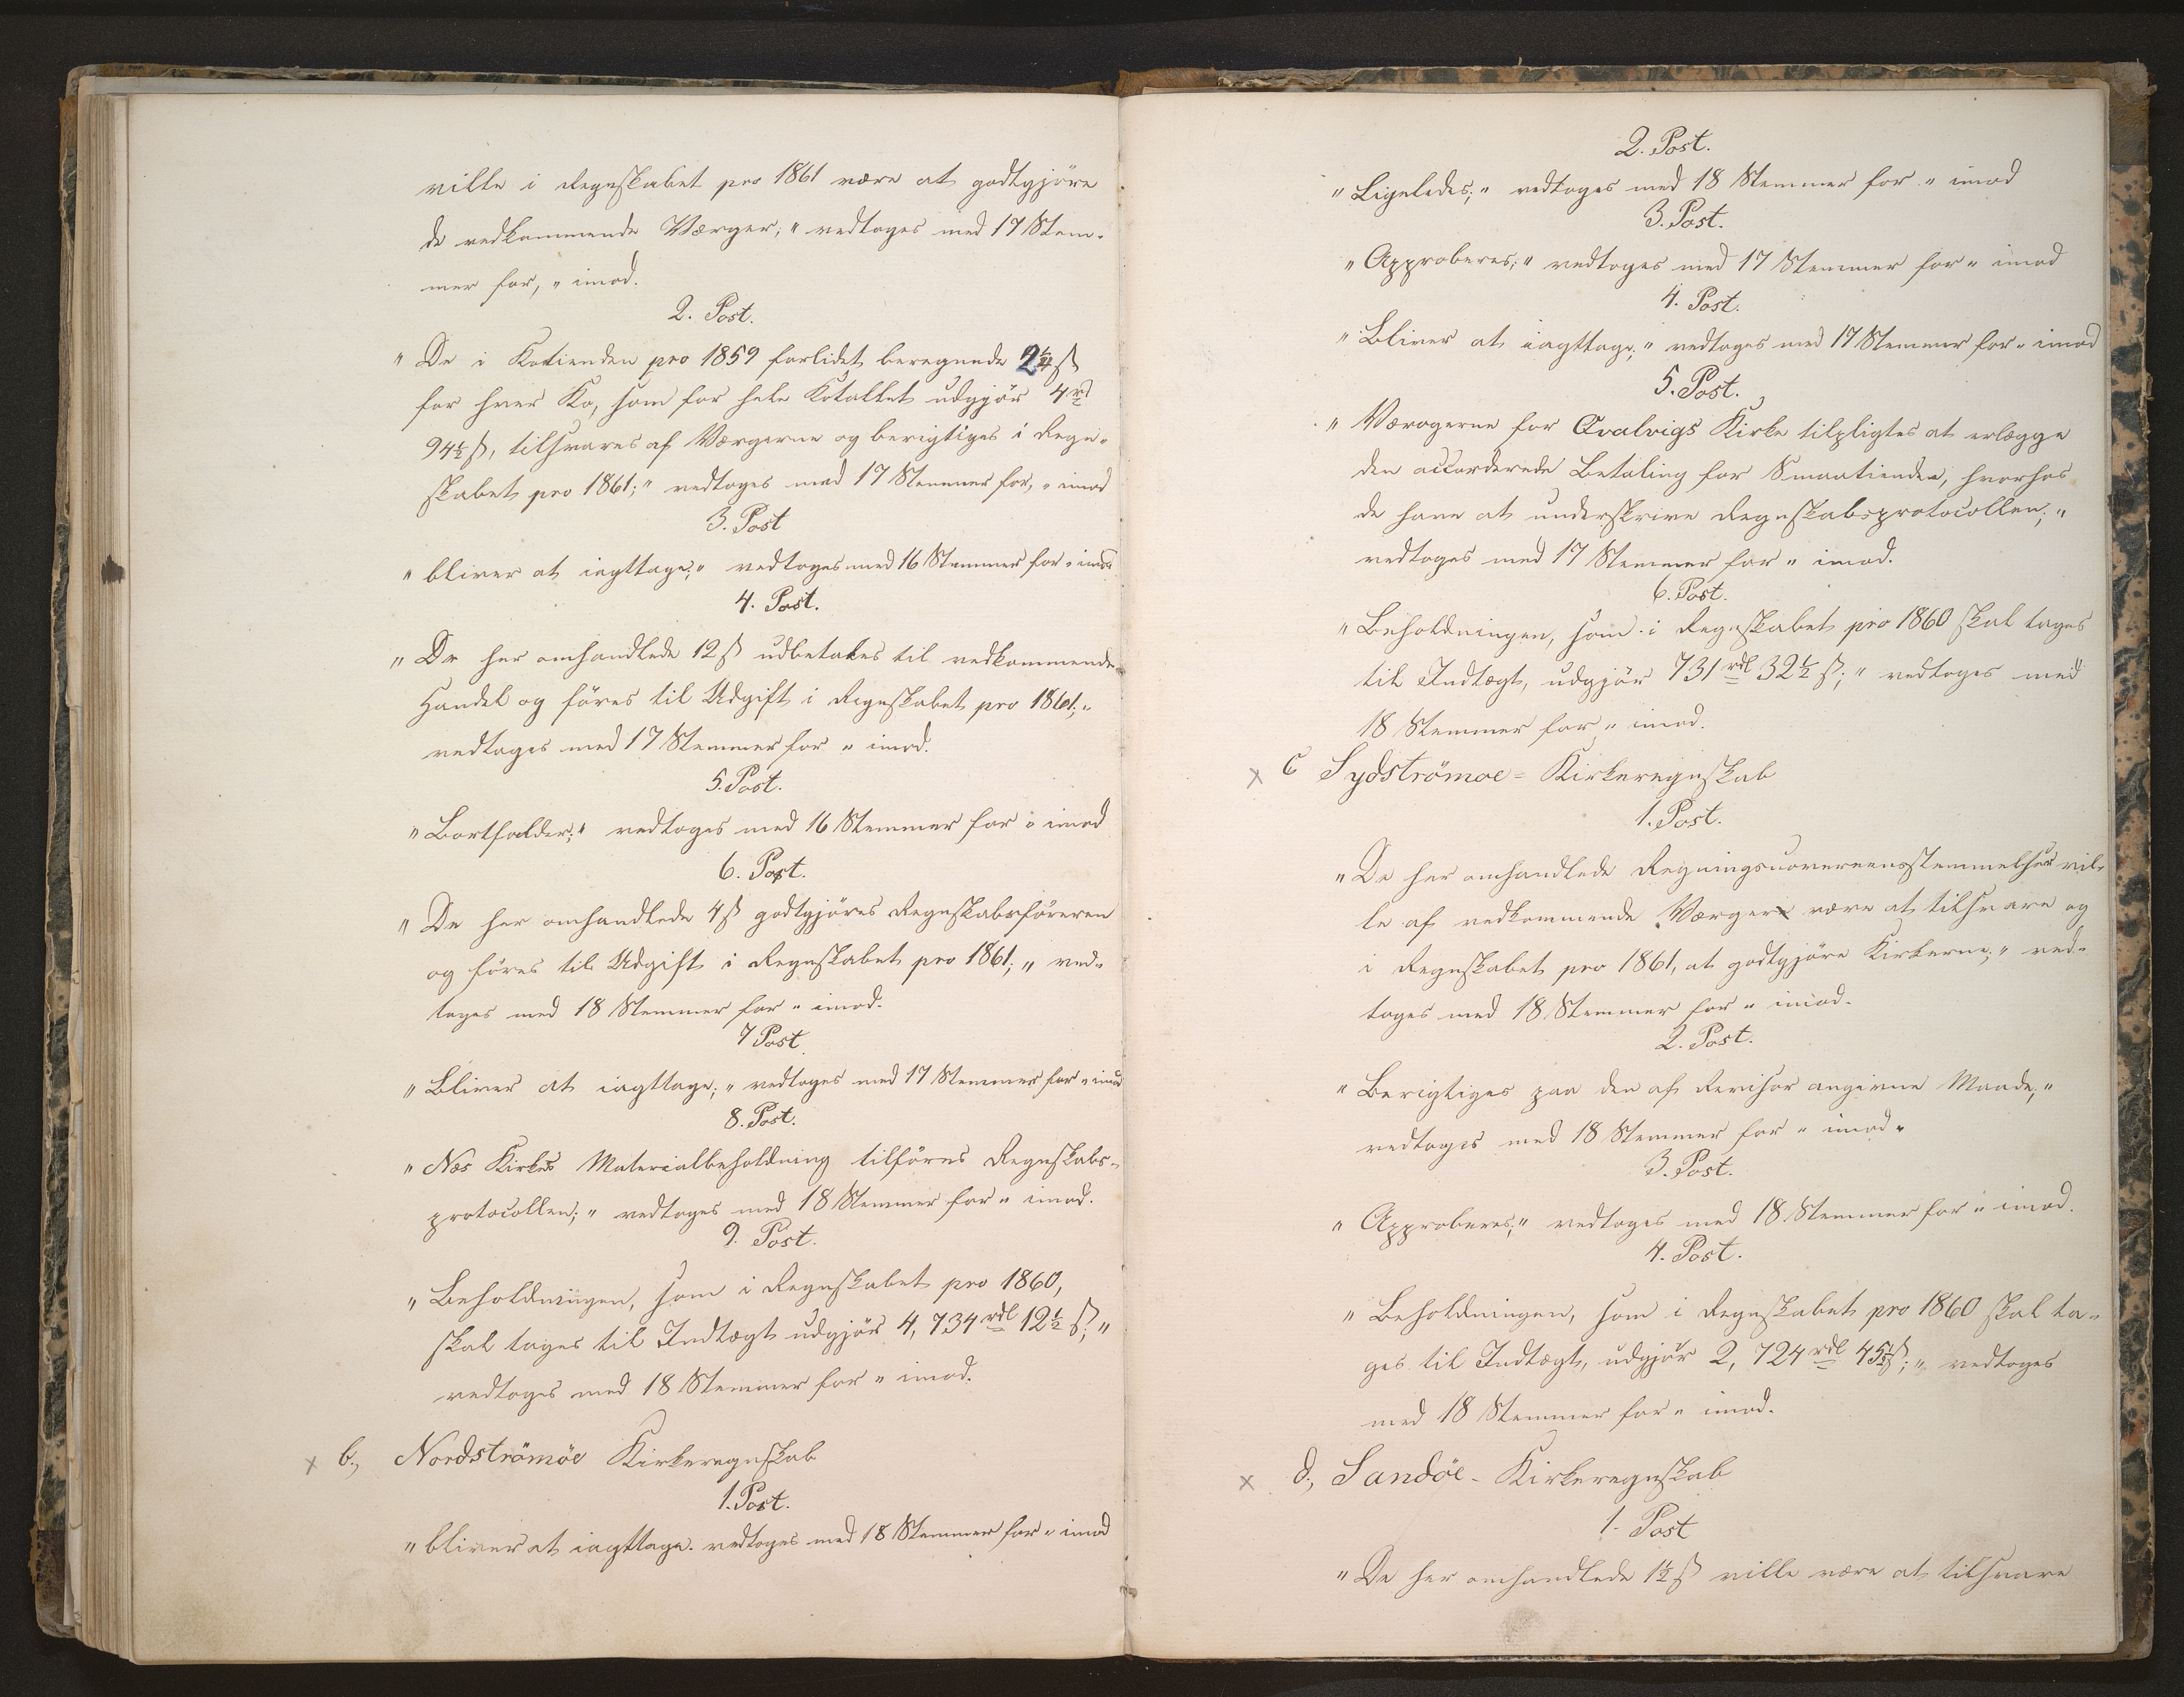 ville i Regnskabet pro 1861 være at godtgjöre
de vedkommende Værger; " vedtoges med 17 Stem-
mer for, " imod.
2. Post.
" De i Kotienden pro 1859 forlidet beregnede 2 ß
for hver Ko, som for hele Kotallet udgjör 4 rd
94½ ß, tilsvares af Værgerne og berigtiges i Regn-
skabet pro 1861; " vedtoges med 17 Stemmer for, " imod
3. Post
" bliver at iagttage; " vedtoges med 16 Stemmer for " imod
4. Post.
" De her omhandlede 12 ß udbetales til vedkommende
Handel og föres til Udgift i Regnskabet pro 1861; "
vedtoges med 17 Stemmer for " imod.
5. Post.
" Bortfalder; " vedtoges med 16 Stemmer for " imod
6. Post.
" De her omhandlede 4 ß godtgjöres Regnskabsföreren
og föres til Udgift i Regnskabet pro 1861; " ved-
toges med 18 Stemmer for " imod.
7 Post.
" Bliver at iagttage; " vedtoges med 17 Stemmer for " imod
8. Post.
" Næs Kirkes Materialbeholdning tilföres Regnskabs-
protocollen; " vedtoges med 18 Stemmer for " imod.
9. Post.
" Beholdningen, som i Regnskabet pro 1860,
skal tages til Indtægt udgjör 4,734 rdl 12½ ß; "
vedtoges med 18 Stemmer for " imod.
x b., Nordströmöe Kirkeregnskab
1. Post.
" bliver at iagttage. vedtoges med 18 Stemmer for " imod
2. Post.
" Ligeledes; " vedtoges med 18 Stemmer for " imod
3. Post.
" Approberes; " vedtoges med 17 Stemmer for " imod
4. Post.
" Bliver at iagttage; " vedtoges med 17 Stemmer for " imod
5. Post.
" Værgerne for Qvalvigs Kirke tilpligtes at erlægge
den accorderede Betaling for Smaatienden, hvorhos
de have at underskrive Regnskabsprotocollen; "
vedtoges med 17 Stemmer for " imod.
6. Post.
" Beholdningen, som i Regnskabet pro 1860 skal tages
til Indtægt, udgjör 731 rdl 32½ ß; " vedtoges med
18 Stemmer for " imod.
x c Sydströmoe - Kirkeregnskab
1. Post.
" De her omhandlede Regningsuovereensstemmelser vil-
le af vedkommende Værger være at tilsvare og
i Regnskabet pro 1861, at godtgjöre Kirkerne; " ved-
toges med 18 Stemmer for " imod.
2. Post.
" Berigtiges paa den af Revisor angivne Maade, "
vedtoges med 18 Stemmer for " imod "
3. Post.
" Approberes; " vedtoges med 18 Stemmer for " imod.
4. Post.
" Beholdningen, som i Regnskabet pro 1860 skal ta-
ges til Indtægt, udgjör 2,724 rdl 45½ ß; " vedtoges
med 18 Stemmer for " imod.
x d., Sandöe - Kirkeregnskab
1. Post
" De her omhandlede 1½ ß ville være at tilsvare